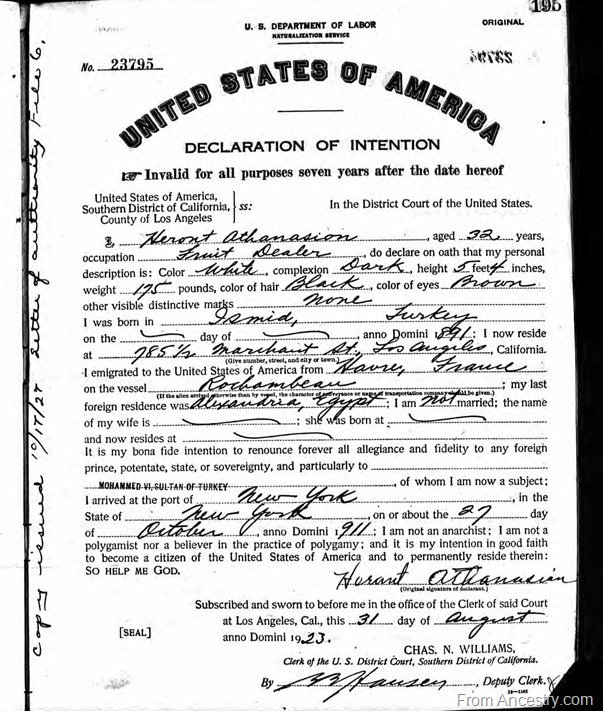 195
U. S. DEPARTMENT OF LABOR
NATURALIZATION SERVICE
ORIGINAL
No. 23795
UNITED STATES OF AMERICA
DECLARATION OF INTENTION
☞ Invalid for all purposes seven years after the date hereof
United States of America,
Southern District of California,
County of Los Angeles
ss:
In the District Court of the United States.
I, Heront Athanasion, aged 32 years,
occupation Fruit Dealer, do declare on oath that my personal
description is: Color White, complexion Dark, height 5 feet 4 inches,
weight 175 pounds, color of hair Black, color of eyes Brown
other visible distinctive marks None
I was born in Ismid, Turkey
on the day of anno Domini 1891; I now reside
at 785 1/2 Marchant St., Los Angeles, California.
(Give number, street, and city or town.)
I emigrated to the United States of America from Havre, France
on the vessel Rochambeau; my last
(If the alien arrived otherwise than by vessel, the character of conveyance or name of transportation company should be given.)
foreign residence was Alexandria, Egypt; I am not married; the name
of my wife is ; she was born at
and now resides at
It is my bona fide intention to renounce forever all allegiance and fidelity to any foreign
prince, potentate, state, or sovereignty, and particularly to
MOHAMMED VI, SULTAN OF TURKEY, of whom I am now a subject;
I arrived at the port of New York, in the
State of New York, on or about the 27 day
of October, anno Domini 1911; I am not an anarchist; I am not a
polygamist nor a believer in the practice of polygamy; and it is my intention in good faith
to become a citizen of the United States of America and to permanently reside therein:
SO HELP ME GOD.
Horant Athanasion
(Original signature of declarant.)
Subscribed and sworn to before me in the office of the Clerk of said Court
at Los Angeles, Cal., this 31 day of August
[SEAL]
anno Domini 1923.
CHAS. N. WILLIAMS,
Clerk of the U. S. District Court, Southern District of California.
By Hansen, Deputy Clerk.
14—1162
copy issued 10/17/27 Letter of authority File 6.
From Ancestry.com